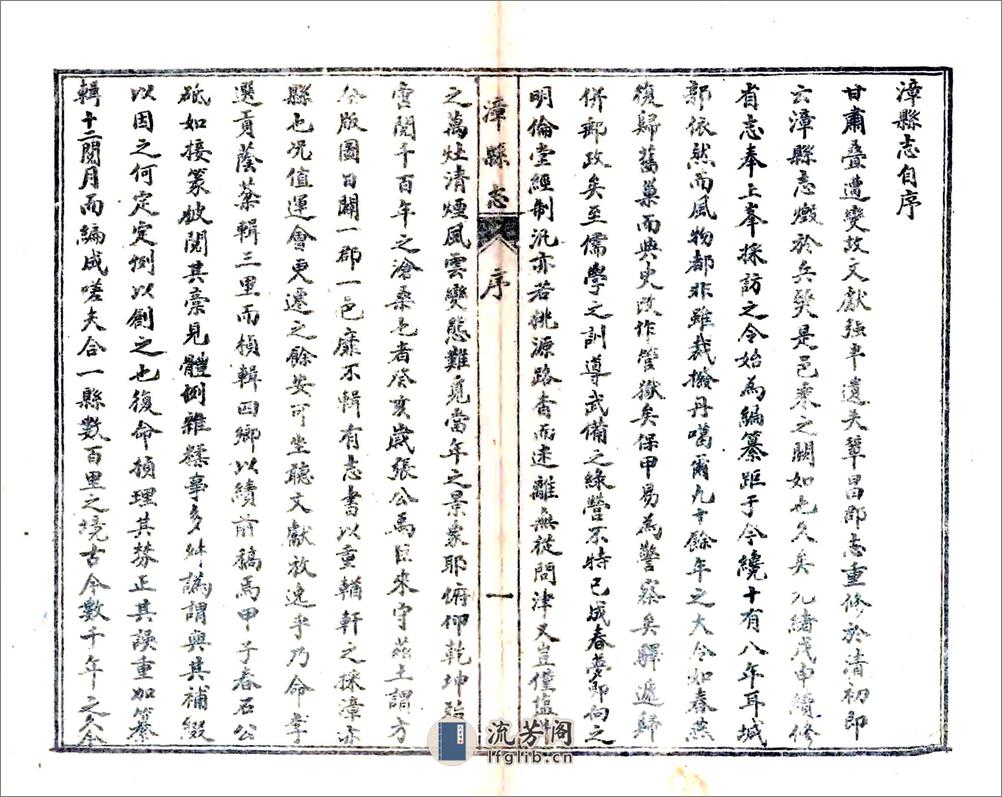 漳縣志自序
甘肅叠遭變故文獻強半遺失鞏昌郡志重修於清初即
云漳縣志燬於兵燹是邑乘之闕如也久矣光緒戊申續修
省志奉上峯採訪之令始為編纂距于今纔十有八年耳城
郭依然而風物都非雖裁撥丹噶爾九十餘年之大令如春燕
復歸舊巢而典史改作管獄矣保甲易為警察矣驛遞歸
併郵政矣至儒學之訓導武備之綠營不特已成春夢即向之
明倫堂經制汛亦若桃源路杳而迷離無從問津又豈僅鹽井
漳縣志 序 一
之萬灶清煙風雲變態難覓當年之景象耶俯仰乾坤殆
雲閱千百年之滄桑也者癸亥歲張公馬臣來守茲土謂方
今版圖日闢一郡一邑靡不輯有志書以重輶軒之採漳亦
縣也况值運會更遷之餘安可坐聽文獻放逸乎乃命李
選貢蔭蓁輯三里而楨輯四鄉以續前稿焉甲子春石公
砥如接篆披閱其藁見體例雜糅事多舛譌謂與其補綴
以因之何定定例以創之也復命楨理其棼正其誤重如纂
輯十二閱月而編成嗟夫合一縣數百里之境古今數千年之久
流芳阁
lfglib.cn